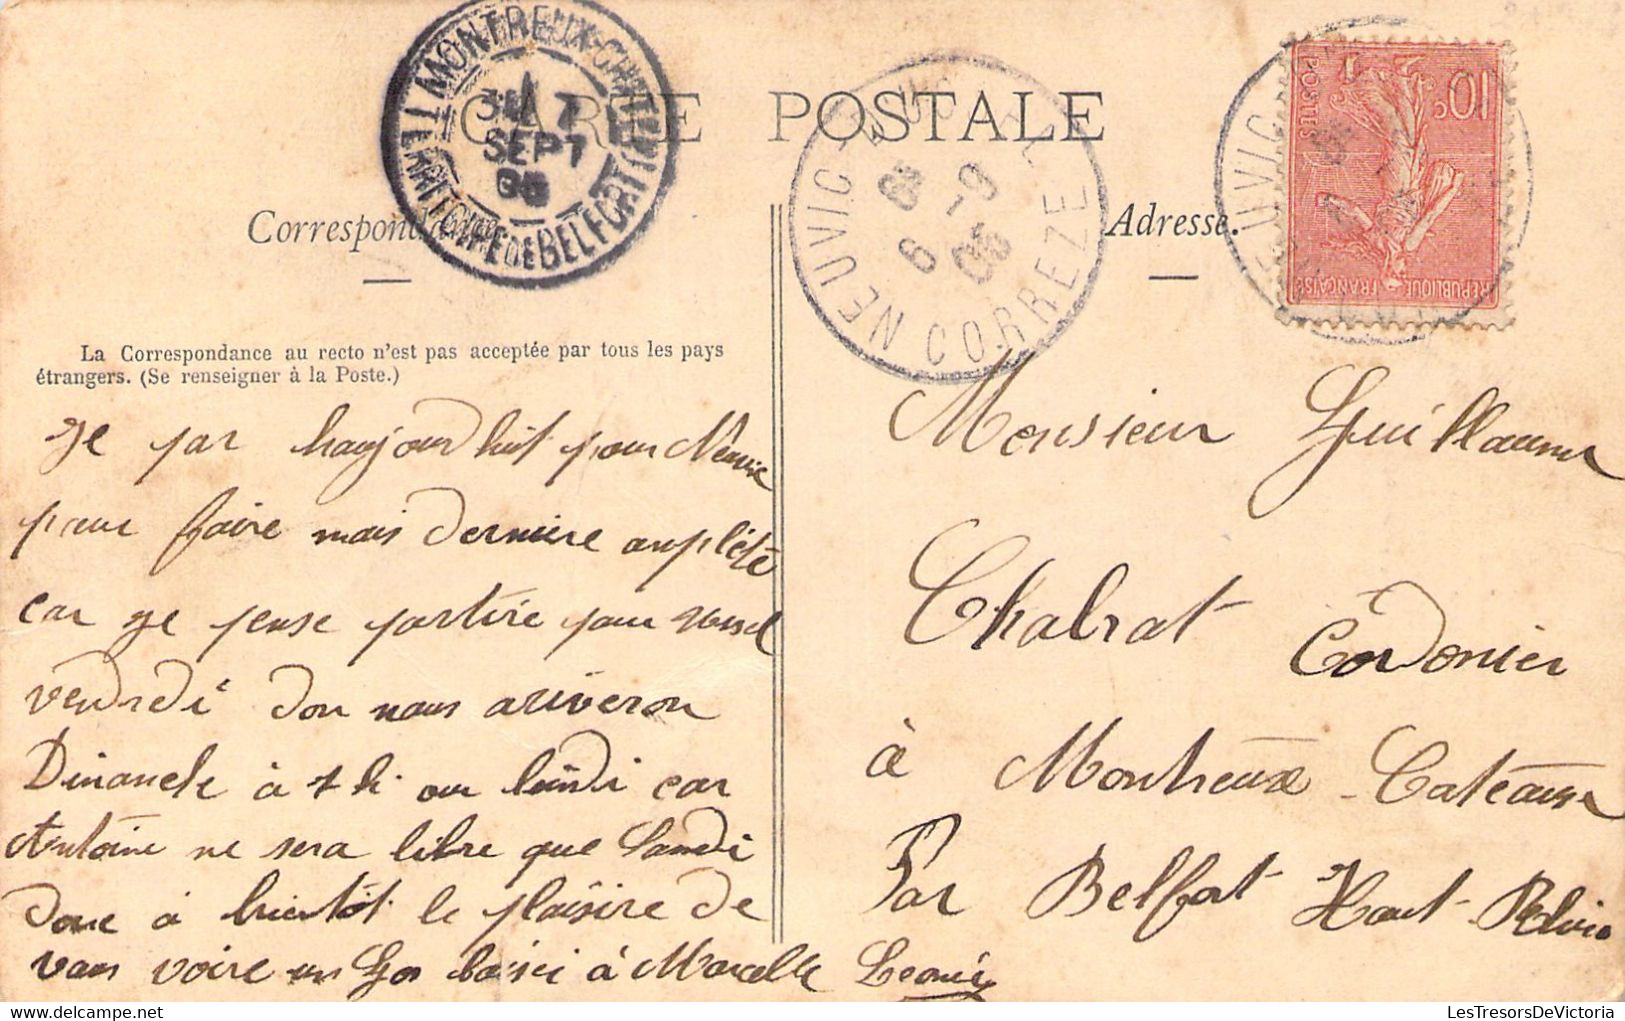 CARTE POSTALE
MONTREUX-CHATEAU
7
SEPT
TERRITRE DE BELFORT
NEUVIC
6 -9
05
CORREZE
10c
POSTES
REPUBLIQUE FRANÇAISE
Correspondance
Adresse.
La Correspondance au recto n'est pas acceptée par tous les pays
étrangers. (Se renseigner à la Poste.)
ge par haujourduit pour Neuvic
pour faire mais derniere anplété
car ge pense partire pour Ussel
vendrdi don nous ariveron
Dimanche à 1 h ou lundi car
Antoine ne sera libre que Samdi
donc à bientôt le plaisire de
vous voire un Gros baisé à Marcelle Leonie
Monsieur Guillaume
Chabrat Cordonier
à Montreux-Cateaux
Par Belfort Haut-Rhin
LesTresorsDeVictoria